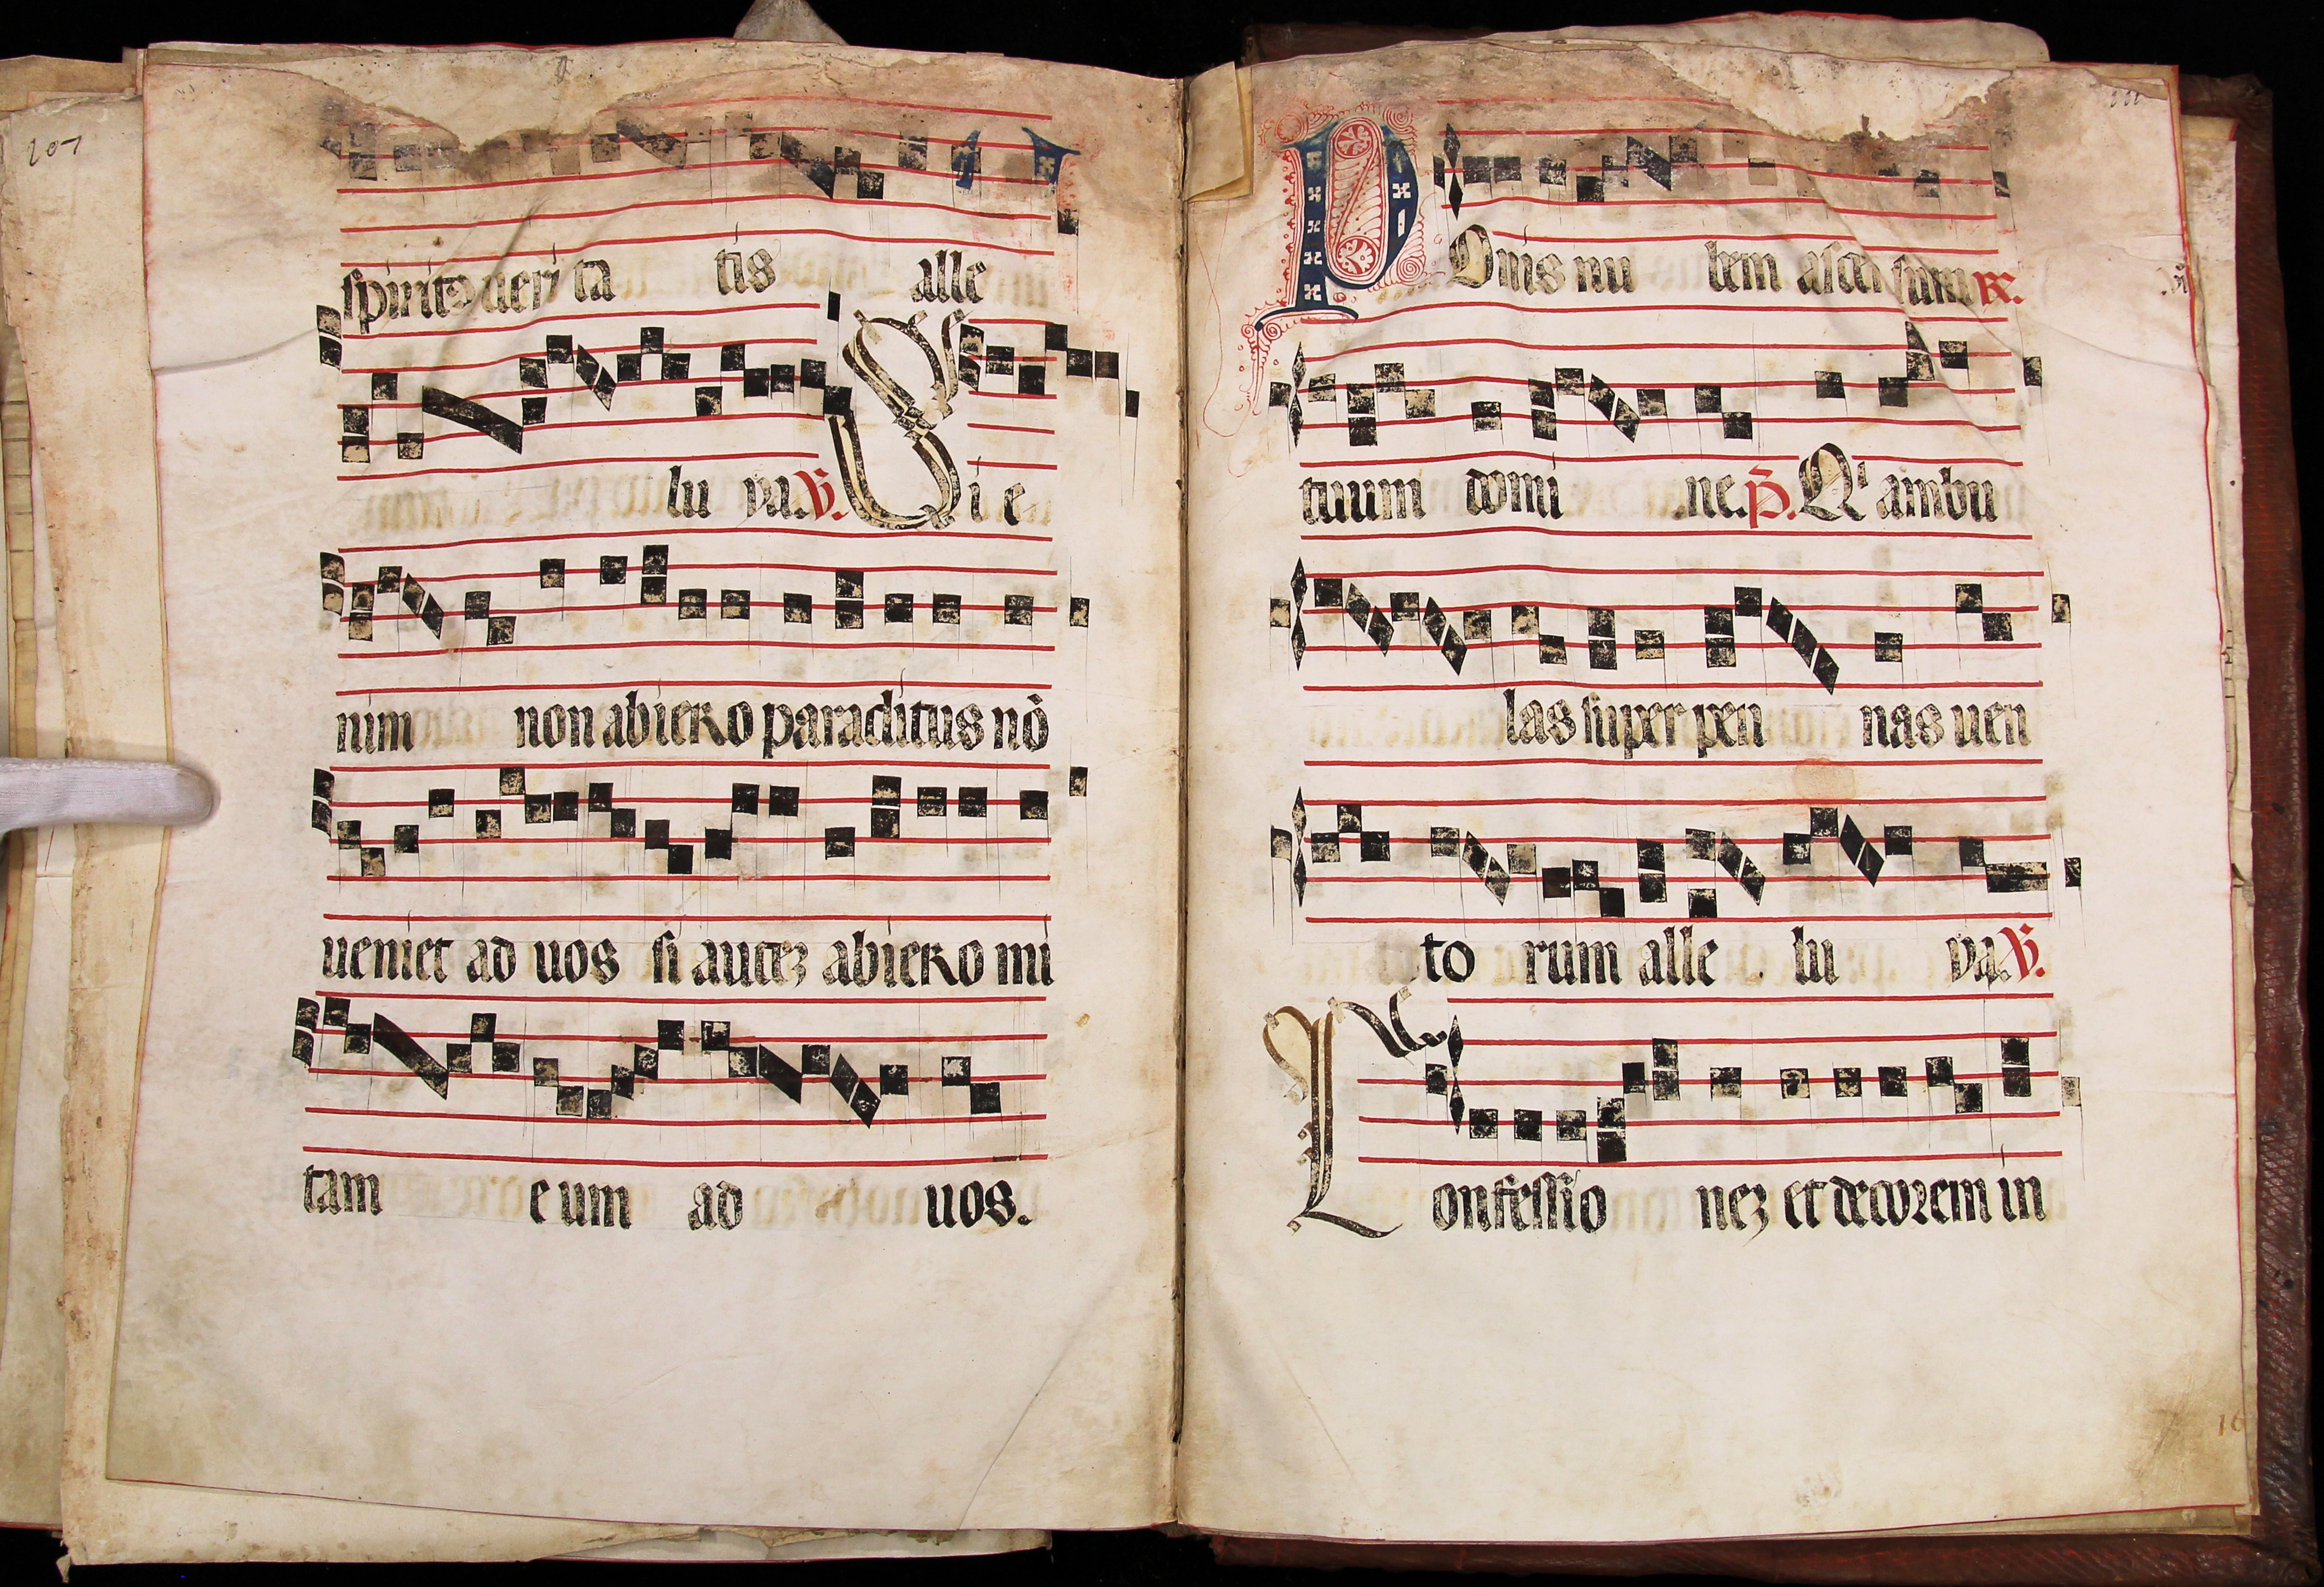 207
spiritꝰ veri ta tis alle
lu ya. ℣. Si e
nim non abiero paraclitus nō
ueniet ad uos si auteʒ abiero mi
tam eum ad uos.
Ponis nu bem ascensum ℟.
tuum domi ne. P̄. Qⁱ ambu
las super pen nas uen
to rum alle lu ya. ℣.
Confessio neʒ et decorem in
16